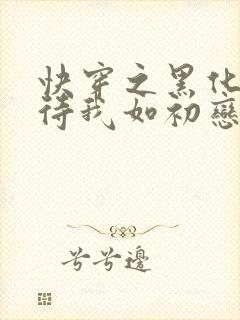 快穿之黑化
待我如初戀
兮兮邊